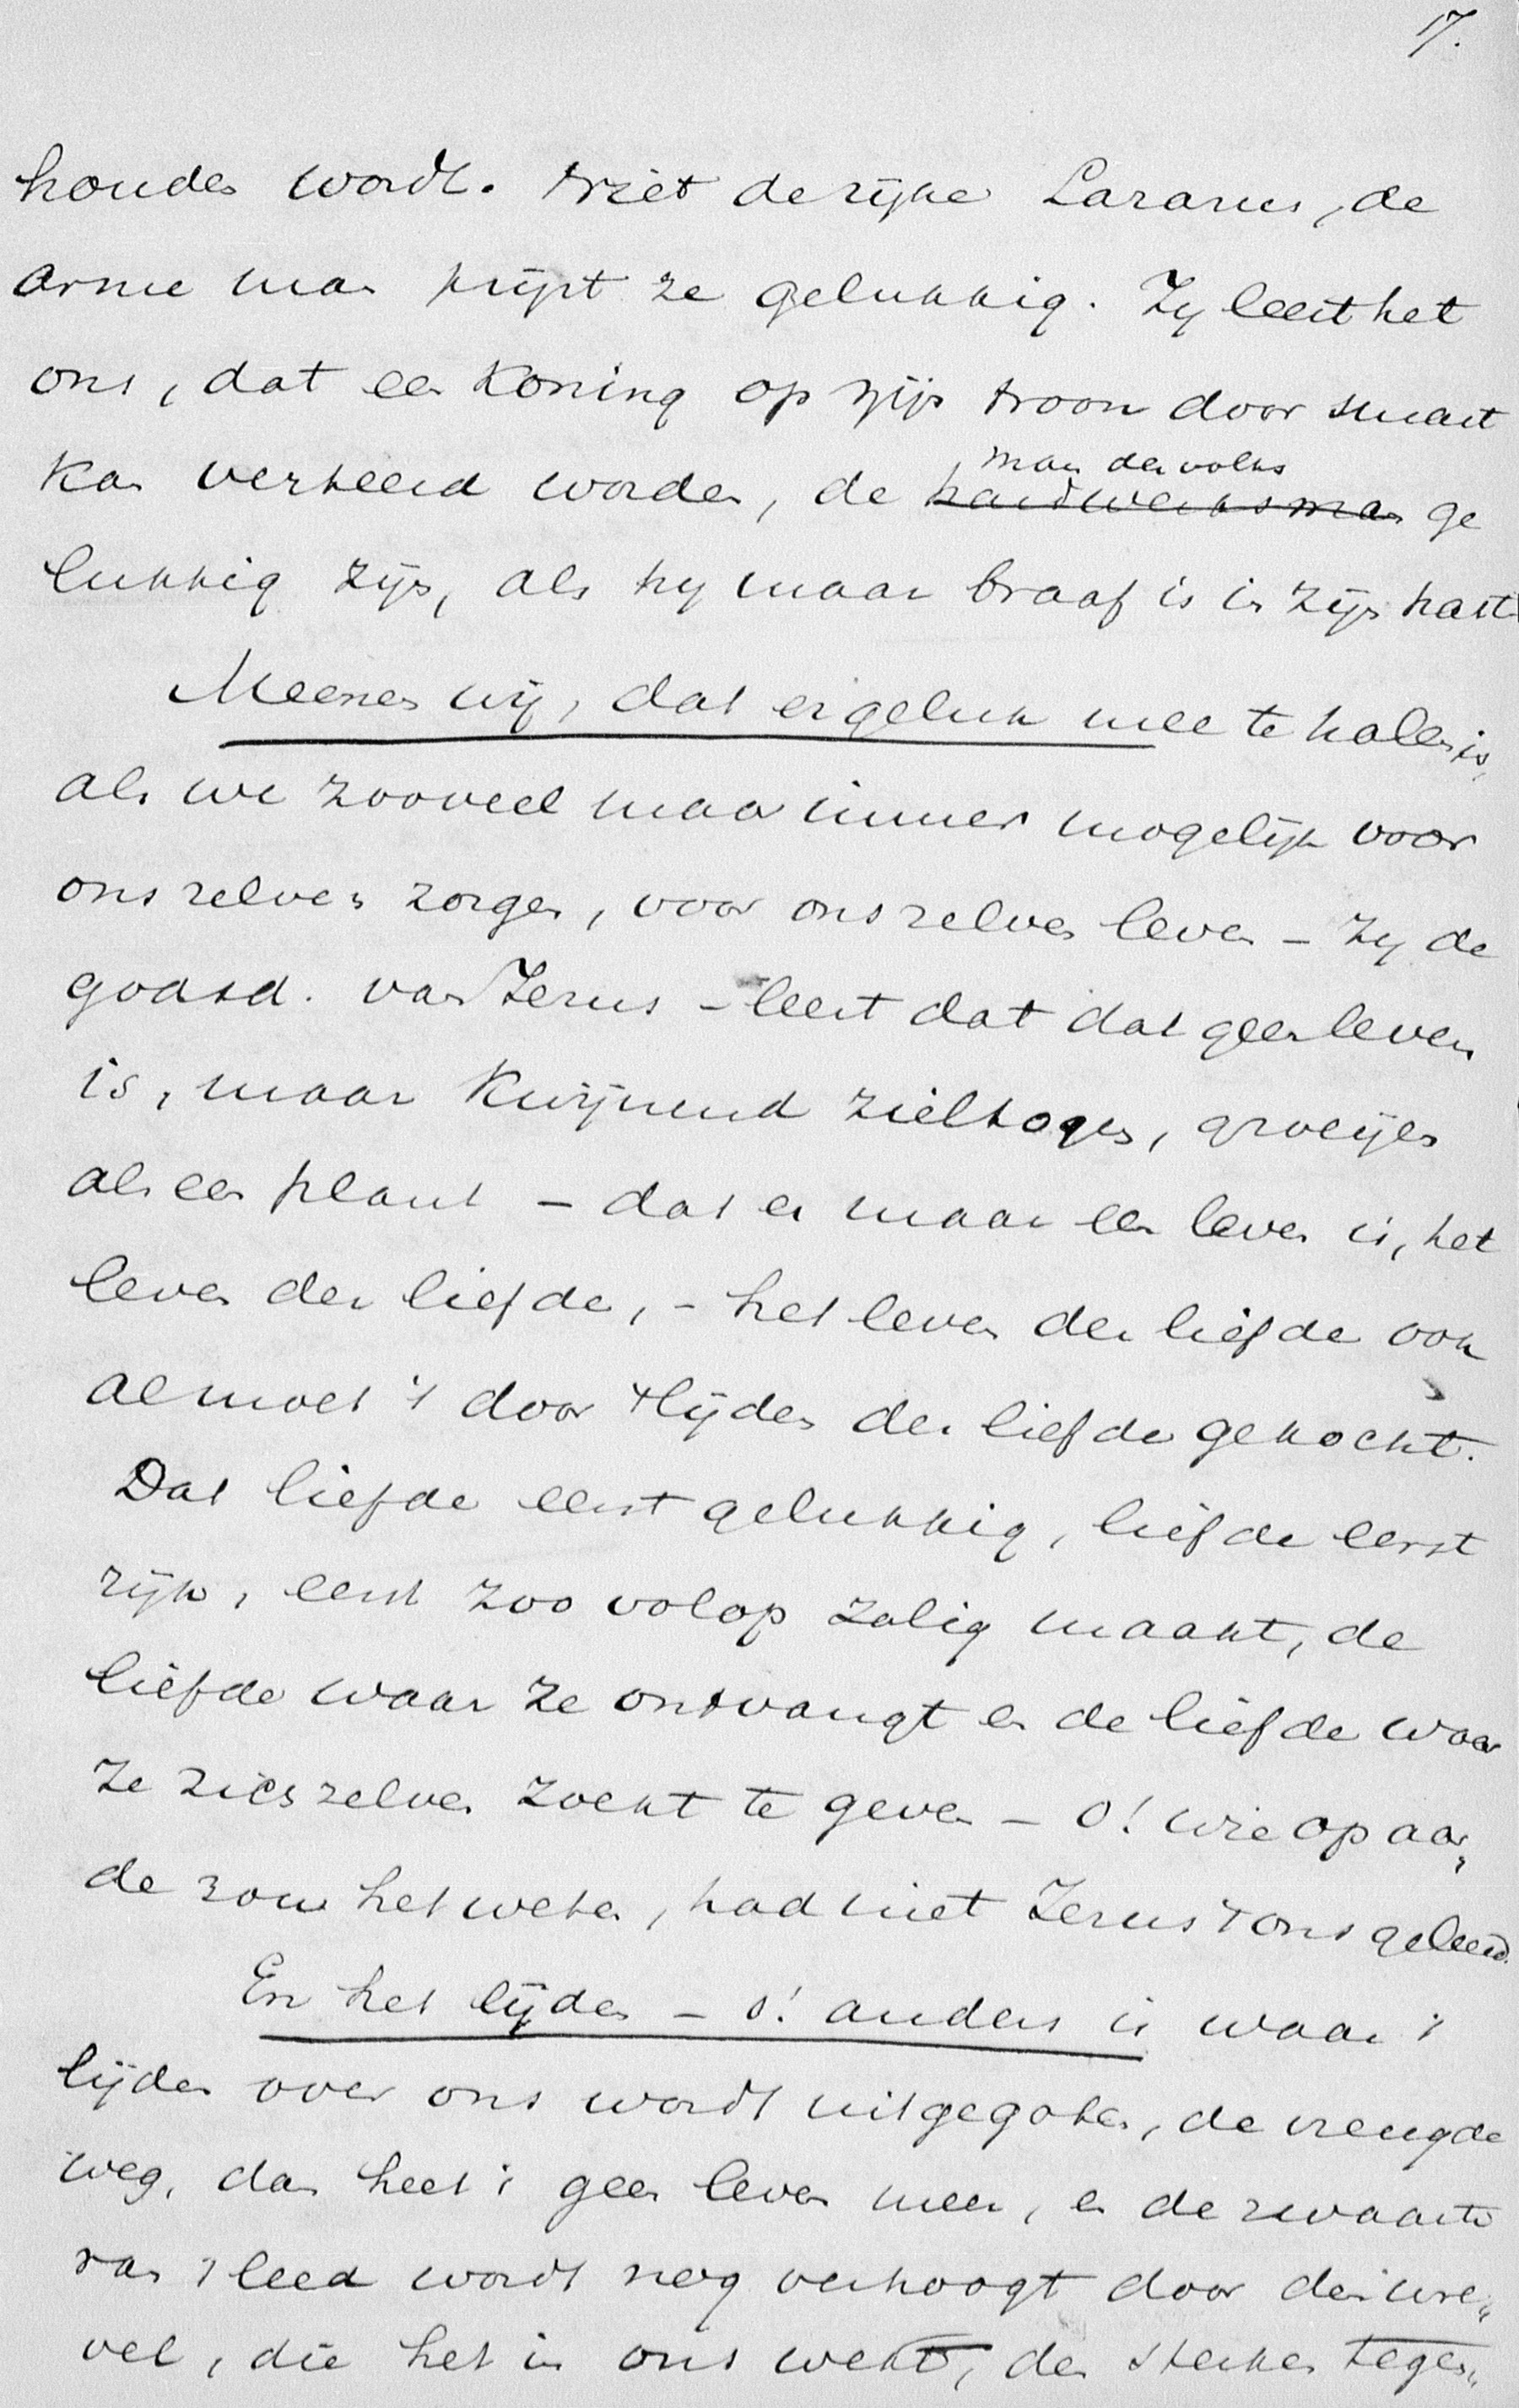 17.
houden wordt. Niet de rijke Lazarus, de
arme man prijst ze gelukkig. Zij leert het
ons, dat een Koning op zijn troon door smart
kan verteerd worden, de man des volks ge
handwerksman
lukkig zijn, als hij maar braaf is in zijn hart.
Meenen wij, dat er geluk mee te halen is,
als we zooveel maar immer mogelijk voor
ons zelven zorgen, voor ons zelven leven - zij de
godsd. van Jezus - leert dat dat geen leven
is, maar kwijnend zieltogen, groeijen
als een plant - dat er maar een leven is, het
leven der liefde, - het leven der liefde ook
al moet 't door 't lijden der liefde gekocht.
Dat liefde eerst gelukkig, liefde eerst
rijk, eerst zoo volop zalig maakt, de
liefde waar ze ontvangt en de liefde waar
ze zich zelven zoekt te geven - o! wie op aar„
de zou het weten, had niet Jezus 't ons geleerd.
En het lijden - o! anders is waar 't
lijden over ons wordt uitgegoten, de vreugde
weg, dan heet 't geen leven meer, en de zwaarte
van 't leed wordt nog verhoogt door den wre„
vel, die het in ons wekt, den sterken tegen„